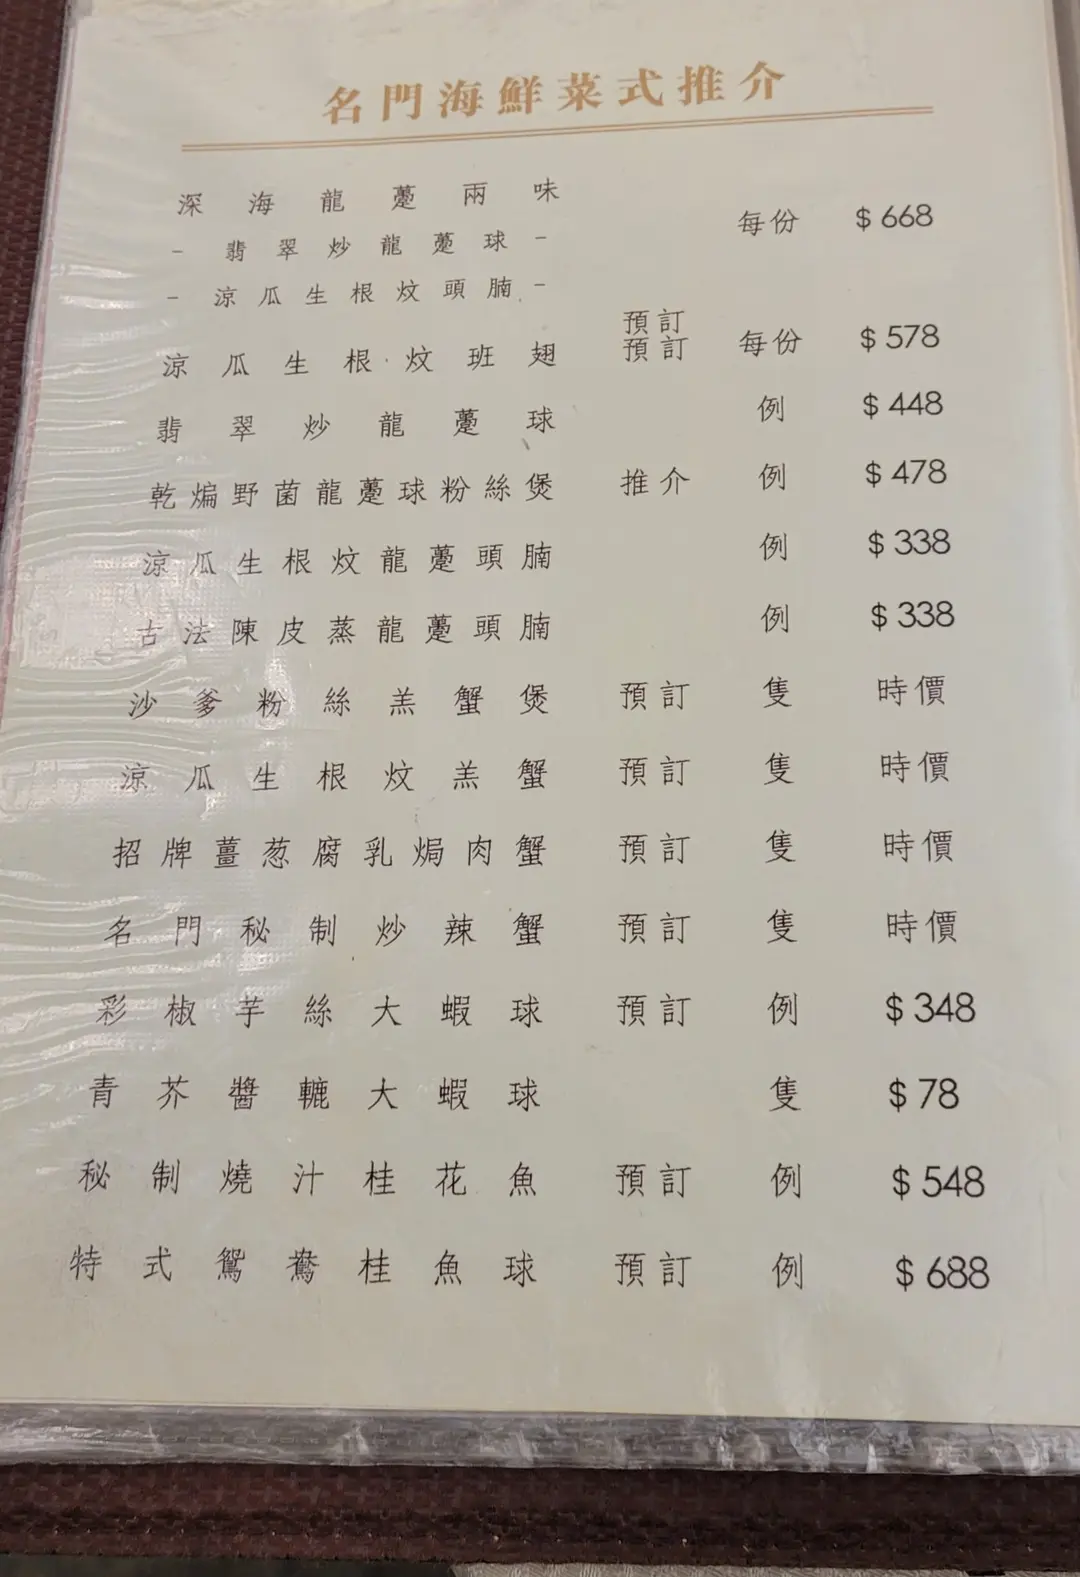 名門海鮮菜式推介
深海龍躉兩味 每份 $668
- 翡翠炒龍躉球 -
- 涼瓜生根炆頭腩 -
預訂
涼瓜生根炆班翅 預訂 每份 $578
翡翠炒龍躉球 例 $448
乾煸野菌龍躉球粉絲煲 推介 例 $478
涼瓜生根炆龍躉頭腩 例 $338
古法陳皮蒸龍躉頭腩 例 $338
沙爹粉絲羔蟹煲 預訂 隻 時價
涼瓜生根炆羔蟹 預訂 隻 時價
招牌薑葱腐乳焗肉蟹 預訂 隻 時價
名門秘制炒辣蟹 預訂 隻 時價
彩椒芋絲大蝦球 預訂 例 $348
青芥醬轆大蝦球 隻 $78
秘制燒汁桂花魚 預訂 例 $548
特式鴛鴦桂魚球 預訂 例 $688